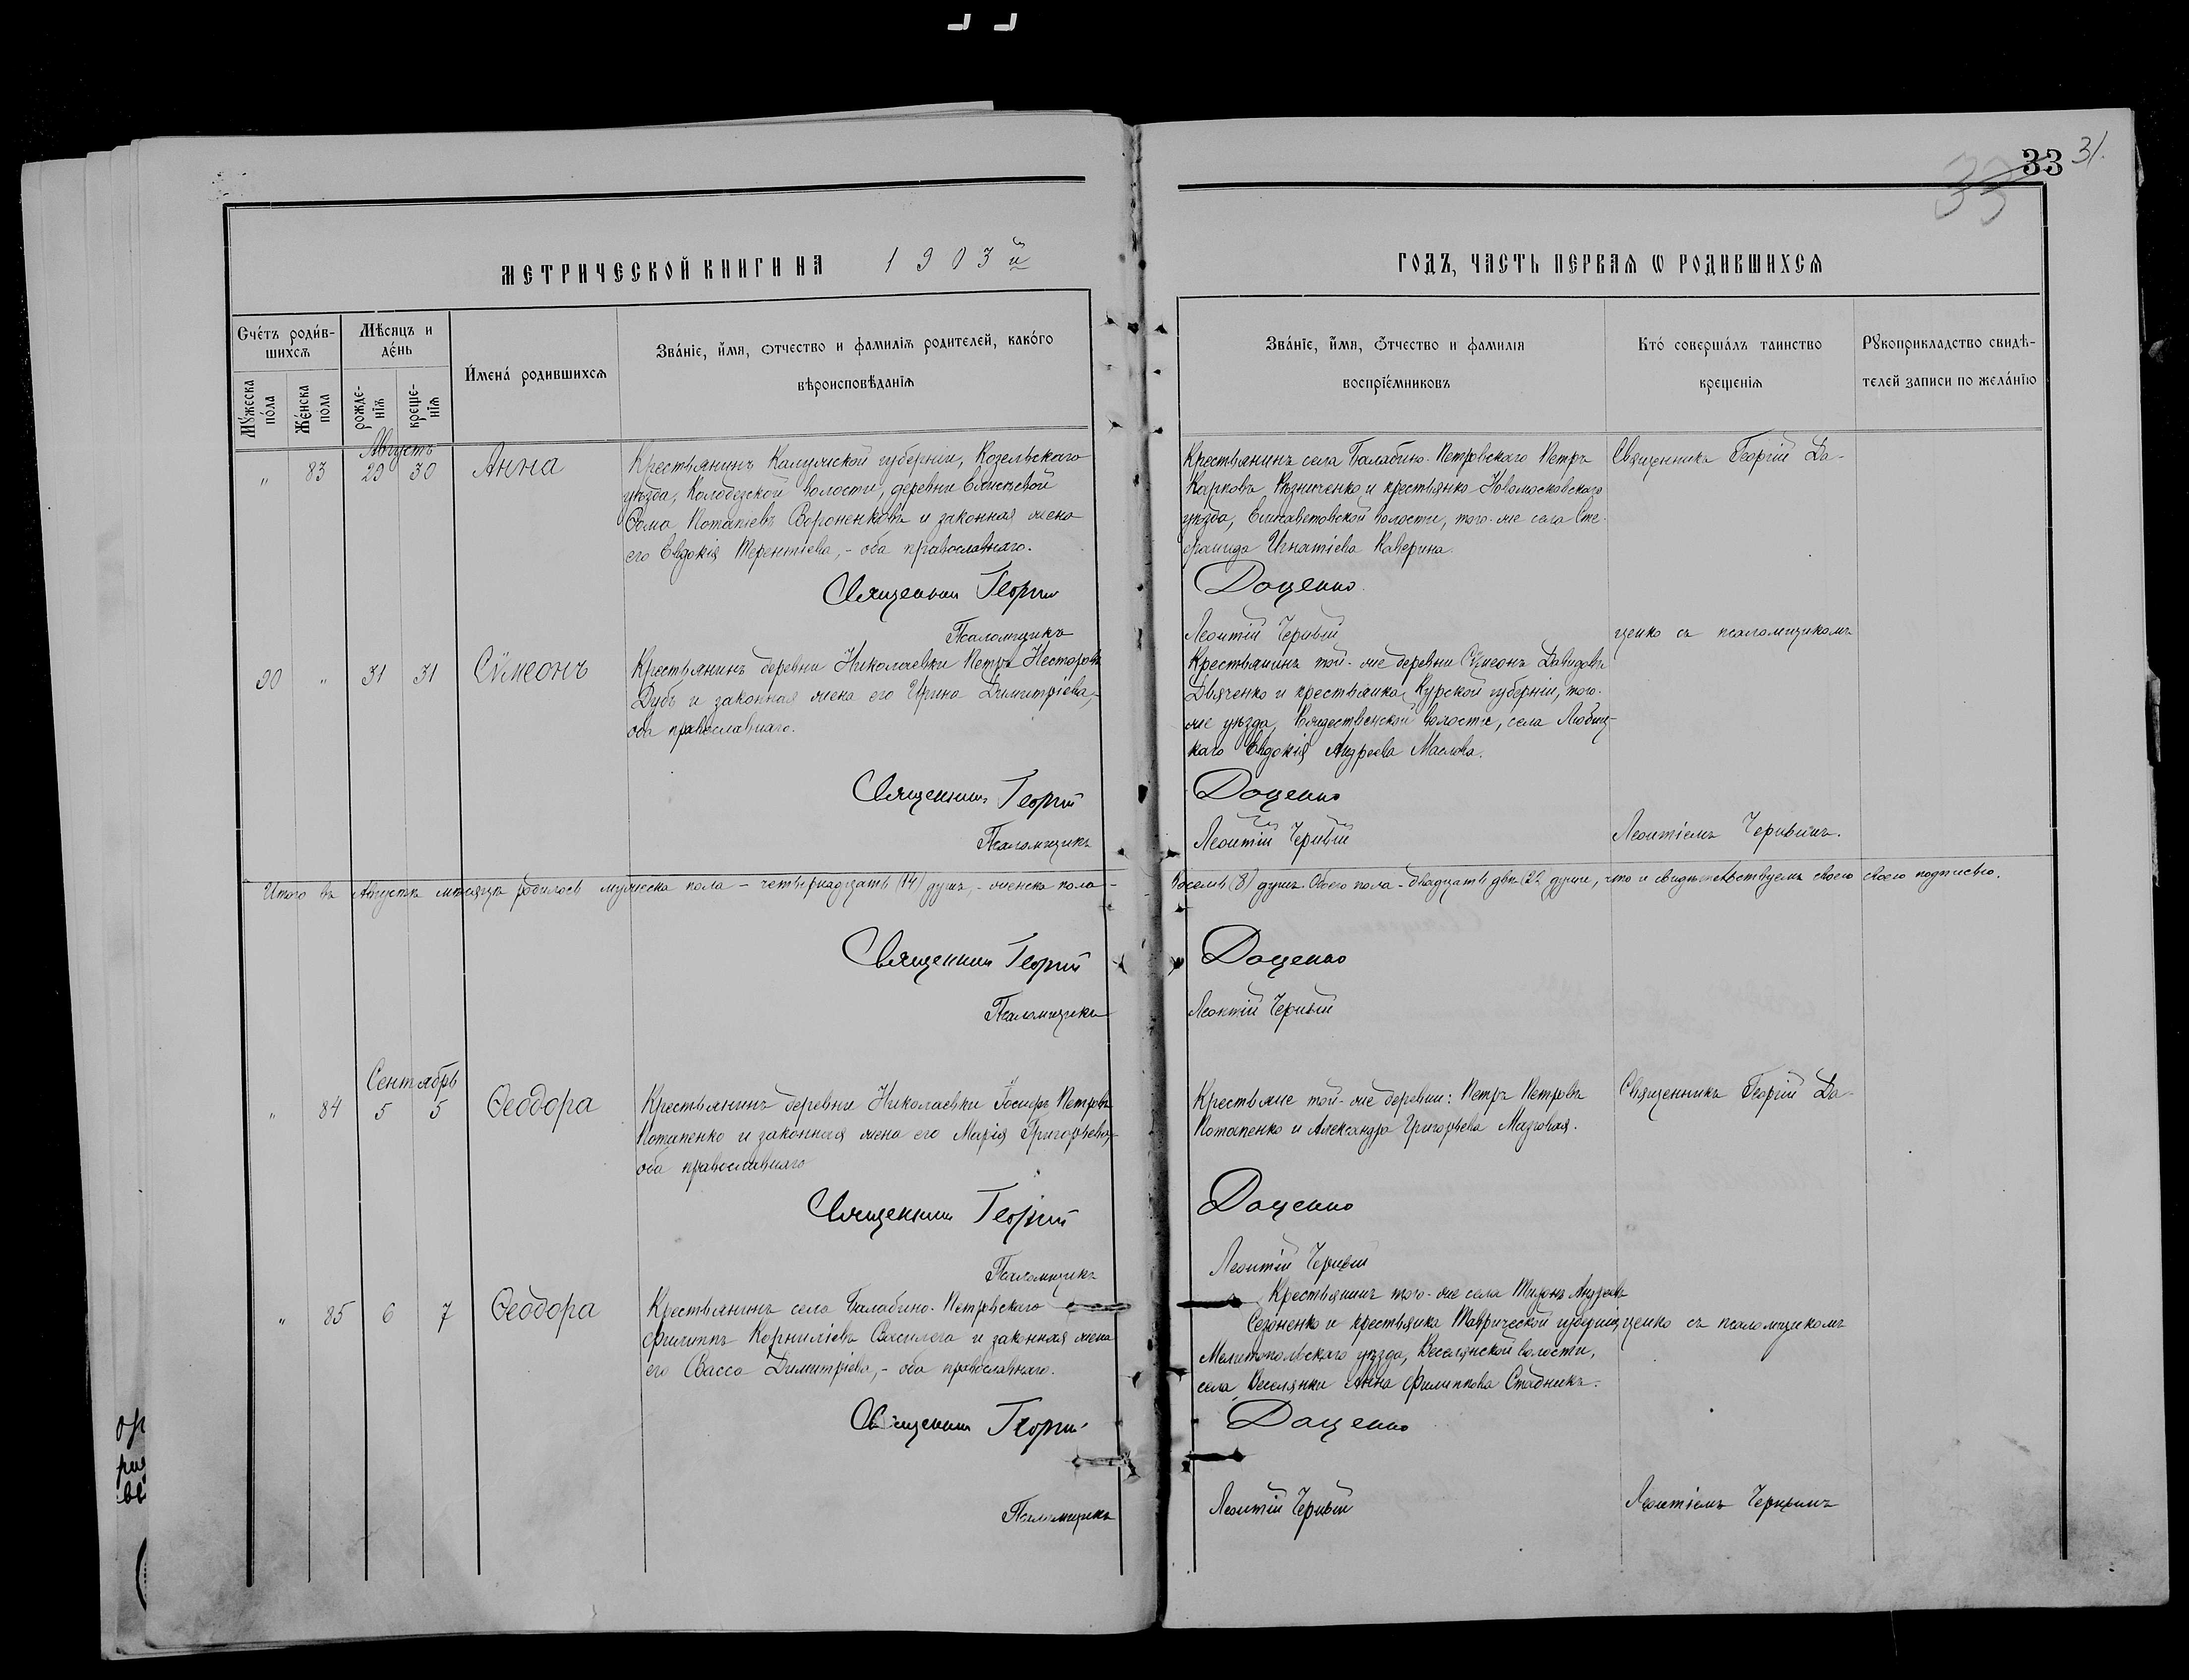 33 31.
33
МЕТРИЧЕСКОЙ КНИГИ НА 1903й
ГОДЪ, ЧАСТЬ ПЕРВАЯ Ѡ РОДИВШИХСЯ
Счетъ родив-
шихся
Мѣсяцъ и
день
Имена родившихся
Званіе, имя, отчество и фамилія родителей, какого
вѣроисповѣданія
Мужеска
пола
Женска
пола
рожде-
нія
креще-
нія
Званіе, имя, отчество и фамилія
воспріемниковъ
Кто совершалъ таинство
крещенія
Рукоприкладство свидѣ-
телей записи по желанію
Августъ
" 83 29 30 Анна
Крестьянинъ Калужской губерніи, Козельскаго
уѣзда, Колодезской волости, деревни
Ѳома Потапіевъ Вороненковъ и законная жена
его Евдокія Терентіева, - оба православнаго.
Крестьянинъ села Балабино-Петровскаго Петръ
Карповъ Рѣзниченко и крестьянка Новомосковскаго
уѣзда, Елисаветовской волости, того-же села Сте-
фанида Игнатіева Каверина.
Священникъ Георгій До-
Священникъ Георгій Доценко
Псаломщикъ Леонтій Черній
ценко съ псаломщикомъ
90 " 31 31 Сѵмеонъ
Крестьянинъ деревни Николаевки Петръ Несторовъ
Дубъ и законная жена его Ирина Димитріева,-
оба православнаго.
Крестьянинъ той-же деревни Сѵмеонъ Давидовъ
Дьяченко и крестьянка Курской губерніи, того-
же уѣзда, Рождественской волости, села Любиц-
каго Евдокія Андреева Маслова.
Священникъ Георгій Доценко
Псаломщикъ Леонтій Черній
Леонтіемъ Чернимъ.
Итого въ Августѣ мѣсяцѣ родилось мужеска пола - четырнадцать (14) душъ, - женска пола - восемь (8) душъ. Обоего пола - двадцать двѣ (22) души, что и свидѣтельствуемъ своею своею подписью.
Священникъ Георгій Доценко
Псаломщикъ Леонтій Черній
Сентябрь
" 84 5 5 Ѳеодора
Крестьянинъ деревни Николаевки Іосифъ Петровъ
Потапенко и законная жена его Марія Григорьева,-
оба православнаго
Крестьяне той-же деревни: Петръ Петровъ
Потапенко и Александра Григорьева Мазовая.
Священникъ Георгій До-
Священникъ Георгій Доценко
Псаломщикъ Леонтій Черній
" 85 6 7 Ѳеодора
Крестьянинъ села Балабино-Петровскаго
Филиппъ Корниліевъ и законная жена
его Васса Димитріева, - оба православнаго.
Крестьянинъ того-же села Миронъ Андреевъ
и крестьянка Таврической губерніи,
Мелитопольскаго уѣзда, Веселянской волости,
села Веселянки Анна Филиппова Стадникъ.
ценко съ псаломщикомъ
Священникъ Георгій Доценко
Псаломщикъ Леонтій Черній
Леонтіемъ Чернимъ